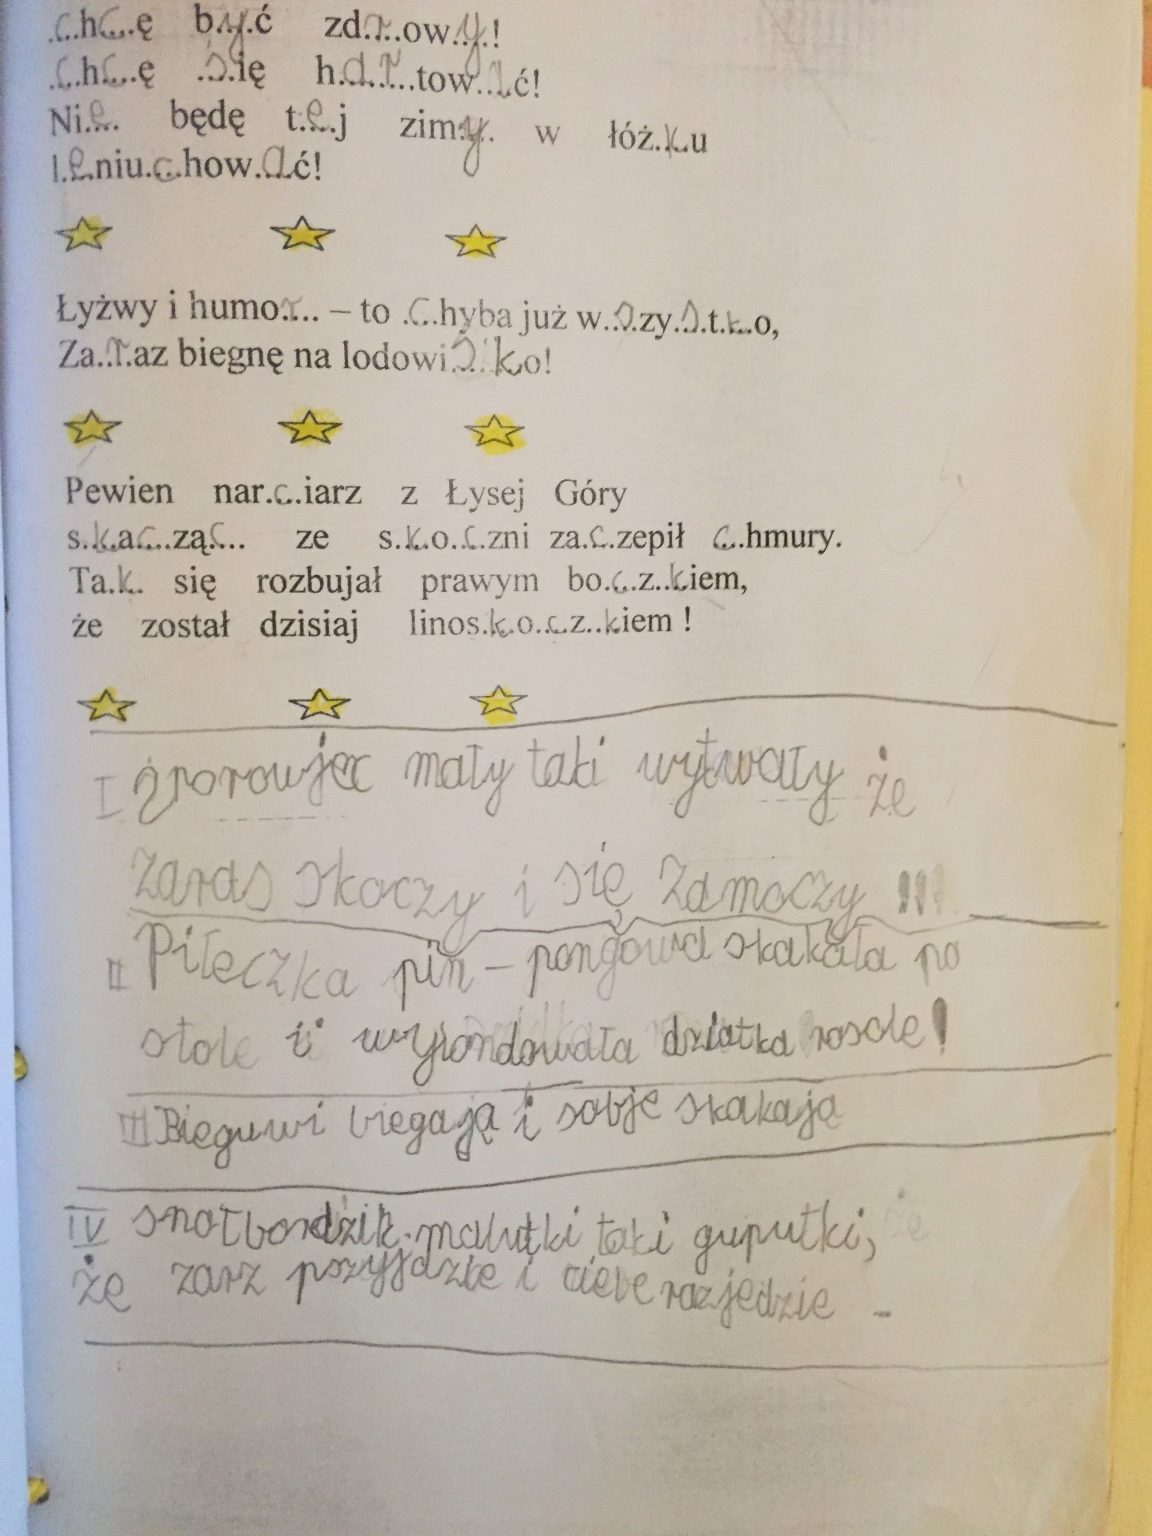 .c..hc...ę b.y.ć zd.r..ow.y.!
.c..hc...ę .s.ię h.a.r...tow..ać!
Ni.e.. będę t.e.j zim.y. w łóż.k.u
l.e.niu.c.how.a.ć!
Łyżwy i humo.r... – to .c.hyba już w..s.zy.s.t.k.o,
Za..r.az biegnę na lodowi.s.ko!
Pewien nar.c..iarz z Łysej Góry
s.k.a.c..ząc... ze s.k.o.c.zni za.c.zepił c..hmury.
Ta.k. się rozbujał prawym bo.c..z..kiem,
że został dzisiaj linos.k.o..c.z..kiem !
I mały taki wytwały że
zaras skoczy i się zamoczy !!!
II Piłeczka pin – pongowa skakała po
stole i wyrondowała dziatka rosole!
III Bieguwi biegają i sobje skakają
IV snołbordzik malutki taki guputki, że
że zarz pszyjdzie i ciebe rozjedzie -